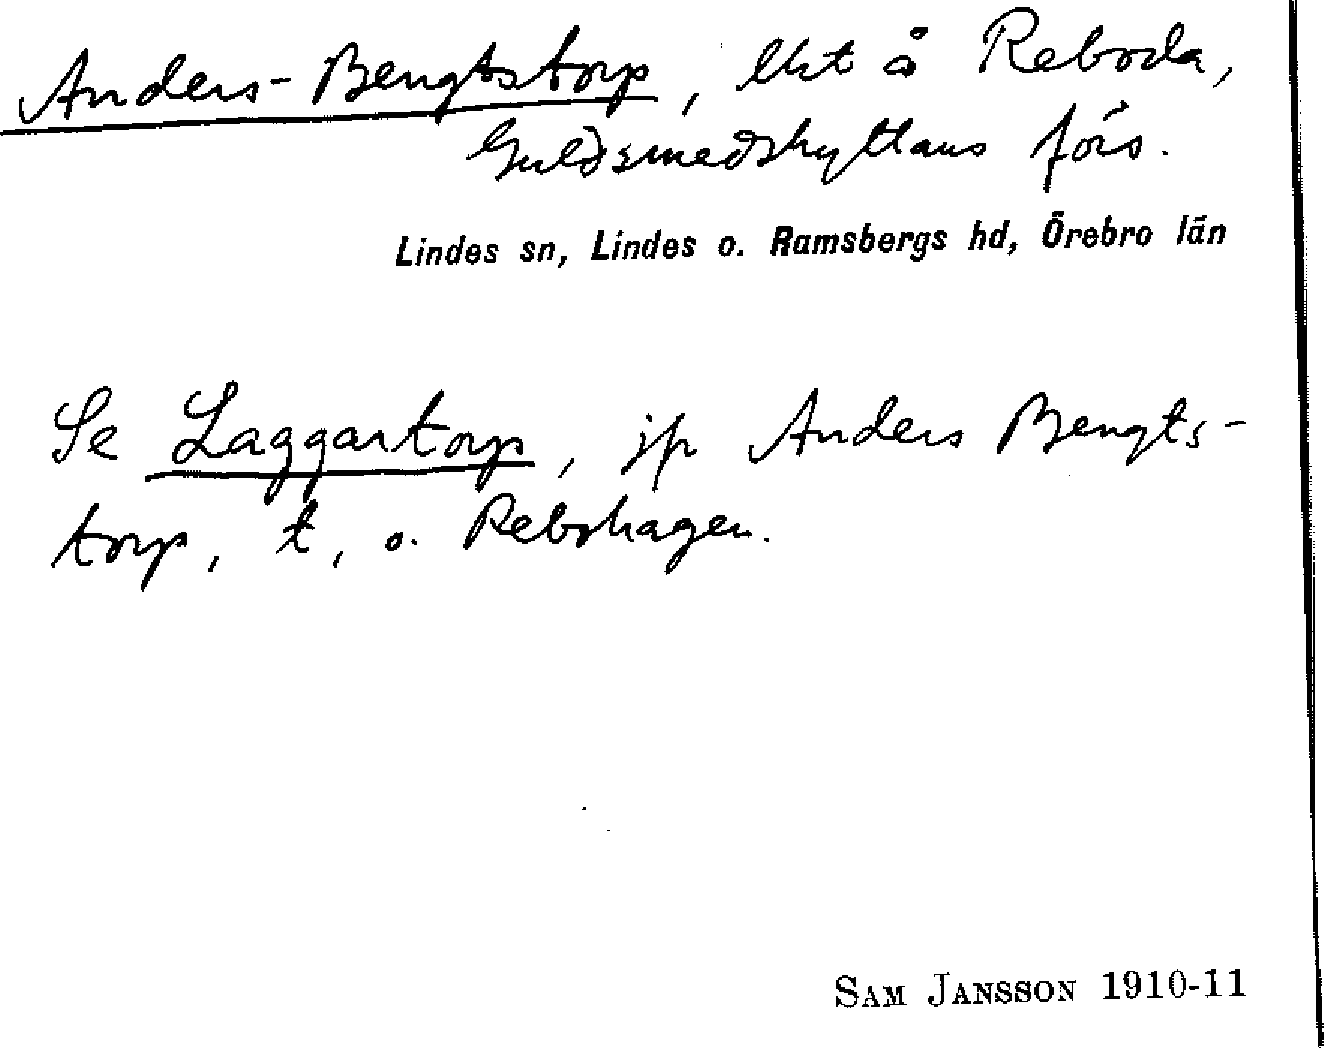 Anders-Bengtstorp, lht å Reboda,
Guldsmedshyttans förs.
Lindes sn, Lindes o. Ramsbergs hd, Örebro län
Se Laggartorp, jfr Anders Bengts-
torp, t, o. Rebohagen.
SAM JANSSON 1910-11